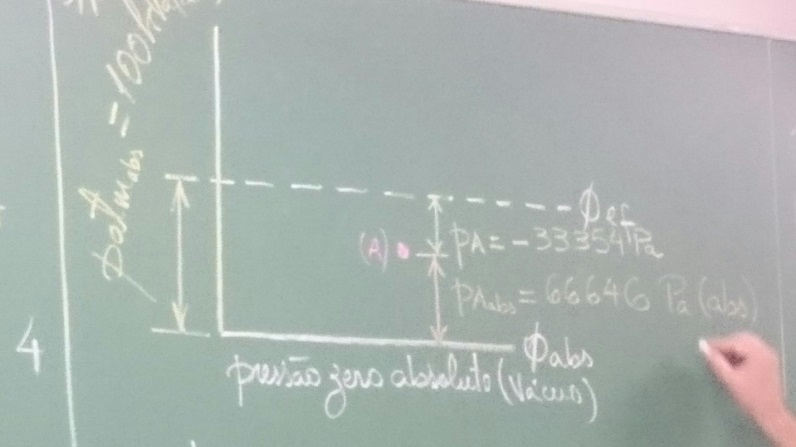 patm abs = 100
∅ef
(A)
pA = -33354 Pa
pA abs = 66646 Pa (abs)
∅abs
pressão zero absoluto (vácuo)
4